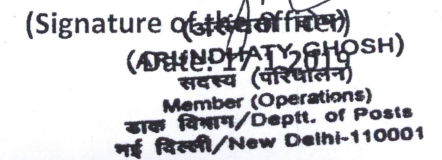 (Signature of the officer)
(अरुंधती घोष)
(ARUNDHATY GHOSH)
Date: 17.1.2019
सदस्य (परिचालन)
Member (Operations)
डाक विभाग/Deptt. of Posts
नई दिल्ली/New Delhi-110001